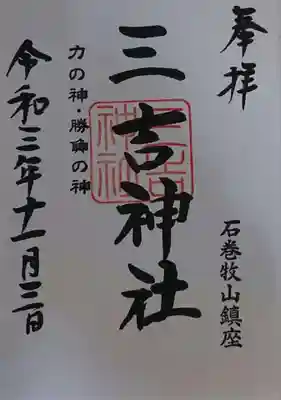 奉拝
石巻牧山鎮座
三吉神社
力の神・勝負の神
令和三年十一月三日
三吉神社